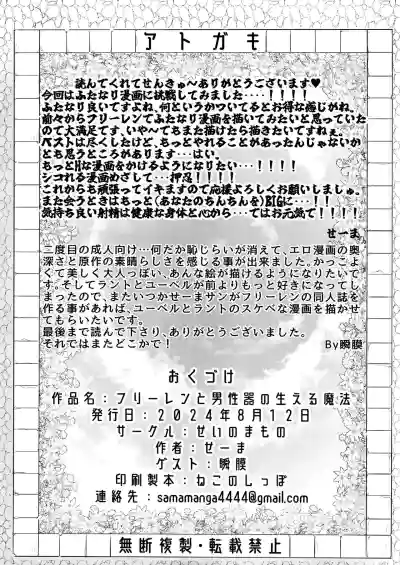 アトガキ
読んでくれてせんきゅ～ありがとうございます♥
今回はふたなり漫画に挑戦してみました・・・・！！！！
ふたなり良いですよね、何というかついてるとお得な感じがね。
前々からフリーレンでふたなり漫画を描いてみたいと思っていた
ので大満足です、いや～でもまた描けたら描きたいですねぇ。
ベストは尽くしたけど、もっとやれることがあったんじゃないか
とも思うところがあります・・・はい。
もっとHな漫画をかけるようになりたい・・・！！！！
シコれる漫画めざして・・・押忍！！！！
これからも頑張ってイキますので応援よろしくお願いしましゅ。
また会うときはもっと(あなたのちんちんを)BIGに・・・！！
気持ち良い射精は健康な身体と心から・・・ではお元気で！！！！
せーま
二度目の成人向け…何だか恥じらいが消えて、エロ漫画の奥
深さと原作の素晴らしさを感じる事が出来ました。かっこよ
くて美しく大人っぽい、あんな絵が描けるようになりたいで
す。そしてラントとユーベルが前より もっと好きになってしま
ったので、またいつかせーまサンがフリーレンの同人誌を
作る事があれば、ユーベルとラントのスケベな漫画を描かせ
てもらいたいです。
最後まで読んで下さり、ありがとうございました。
それではまたどこかで！
By瞬膜
おくづけ
作品名：フリーレンと男性器の生える魔法
発行日：2024年8月12日
サークル：せいのまもの
作者：せーま
ゲスト：瞬膜
印刷製本：ねこのしっぽ
連絡先：samamanga4444@gmail.com
無断複製・転載禁止